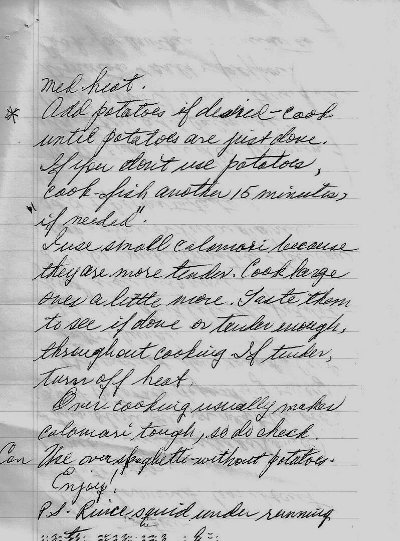 med heat.
* Add potatoes if desired - cook
until potatoes are just done.
If you don't use potatoes,
cook fish another 15 minutes,
"if needed".
I use small calamari because
they are more tender. Cook large
ones a little more. Taste them
to see if done or tender enough,
throughout cooking If tender,
turn off heat.
Over cooking usually makes
calamari tough, so do check.
Can Use over spaghetti without potatoes.
Enjoy!
P.S. Rince squid under running